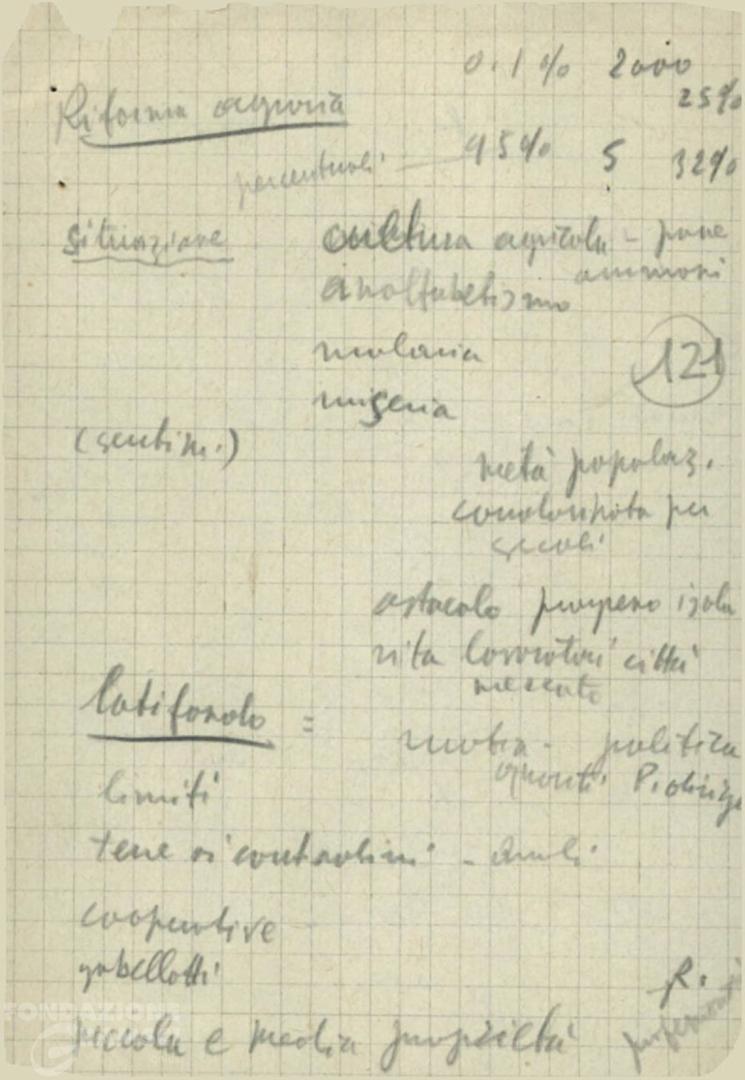 0.1% 2000
25%
Riforma agraria
percentuali — 95% 5 32%
situazione
cultura agricola - pane
analfabetismo
malaria
121
miseria
(sentim.)
metà popolaz.
per
secoli
ostacolo progresso isola
vita lavoratori città
latifondo =
politica
limiti
terre ai contadini -
cooperative
gabellotti
R.
FONDAZIONE
piccola e media proprietà